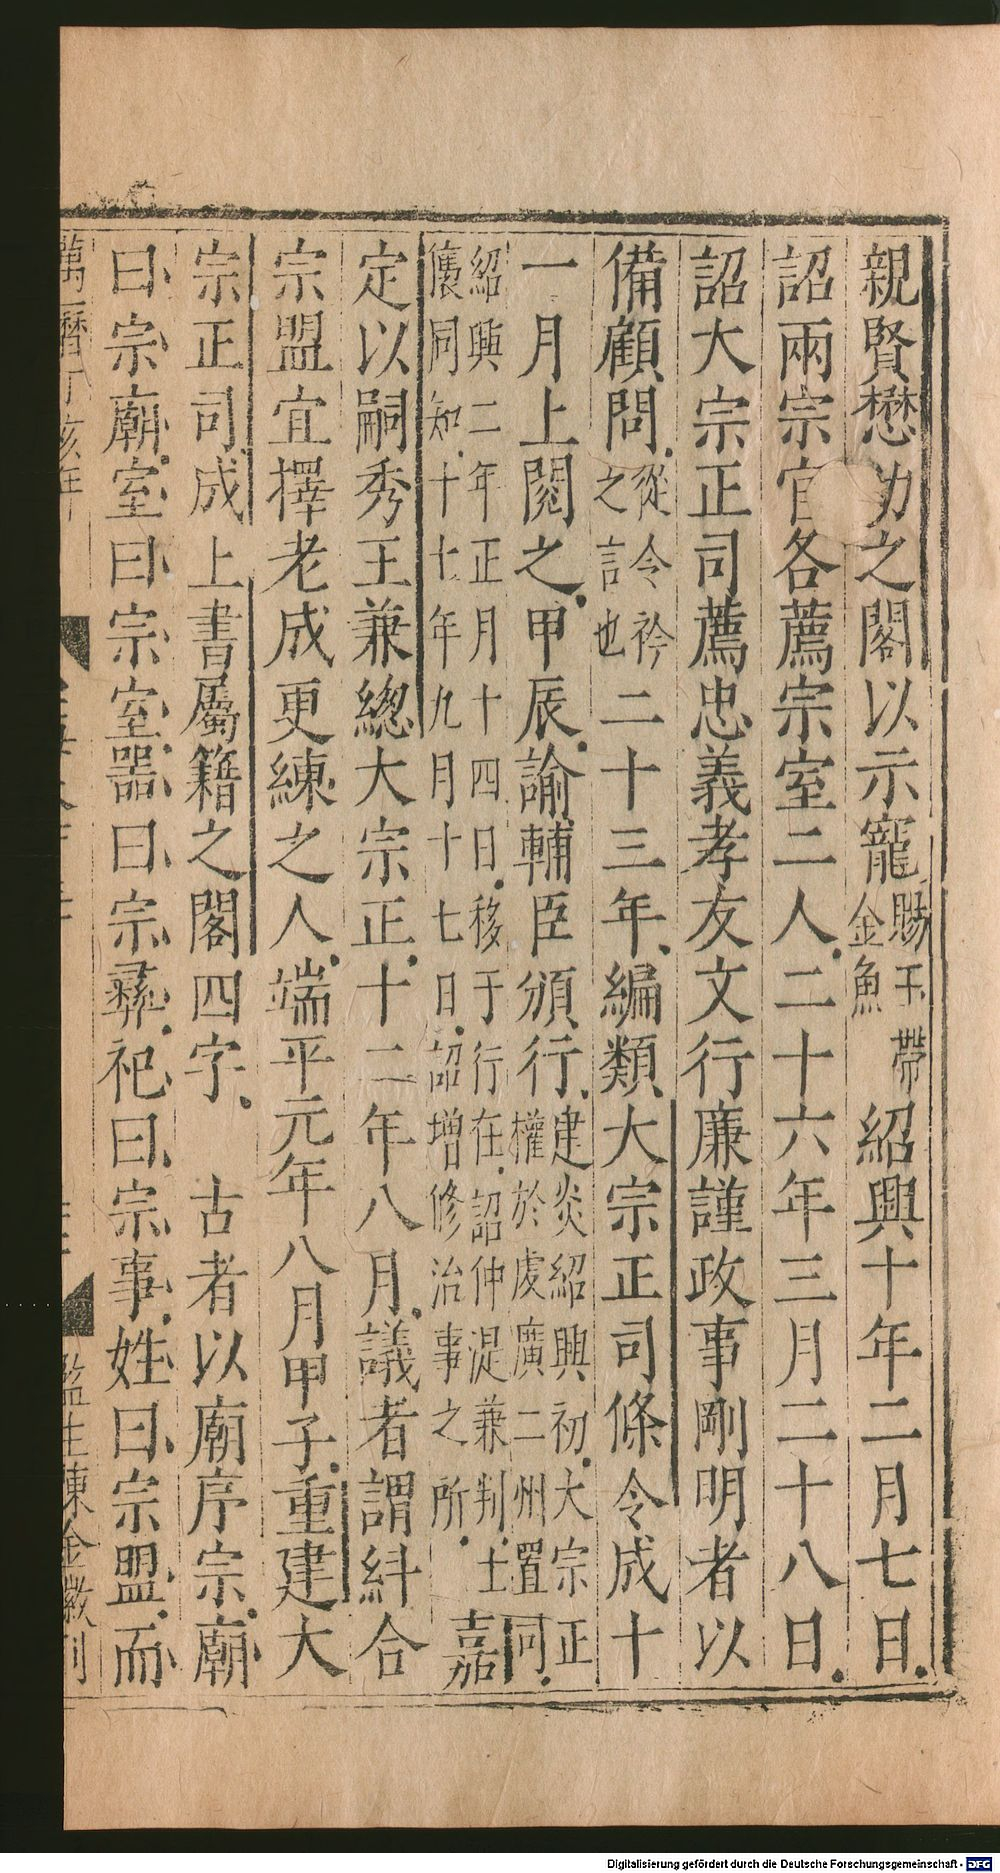 親賢懋功之閣以示寵賜玉帶金魚紹興十年二月七日
詔兩宗官各薦宗室二人二十六年三月二十八日
詔大宗正司薦忠義孝友文行廉謹政事剛明者以
備顧問從令衿之言也二十三年編類大宗正司條令成十
一月上閱之甲辰諭輔臣頒行建炎紹興初大宗正權於虔廣二州置同
紹興二年正月十四日移于行在詔仲湜兼判士㒟同知十七年九月十七日詔增修治事之所嘉
定以嗣秀王兼總大宗正十二年八月議者謂紏合
宗盟宜擇老成更練之人端平元年八月甲子重建大
宗正司成上書屬籍之閣四字 古者以廟序宗廟
曰宗廟室曰宗室器曰宗彞祀曰宗事姓曰宗盟而
萬曆丁亥年
監生陳金徽刊
Digitalisierung gefördert durch die Deutsche Forschungsgemeinschaft - DFG